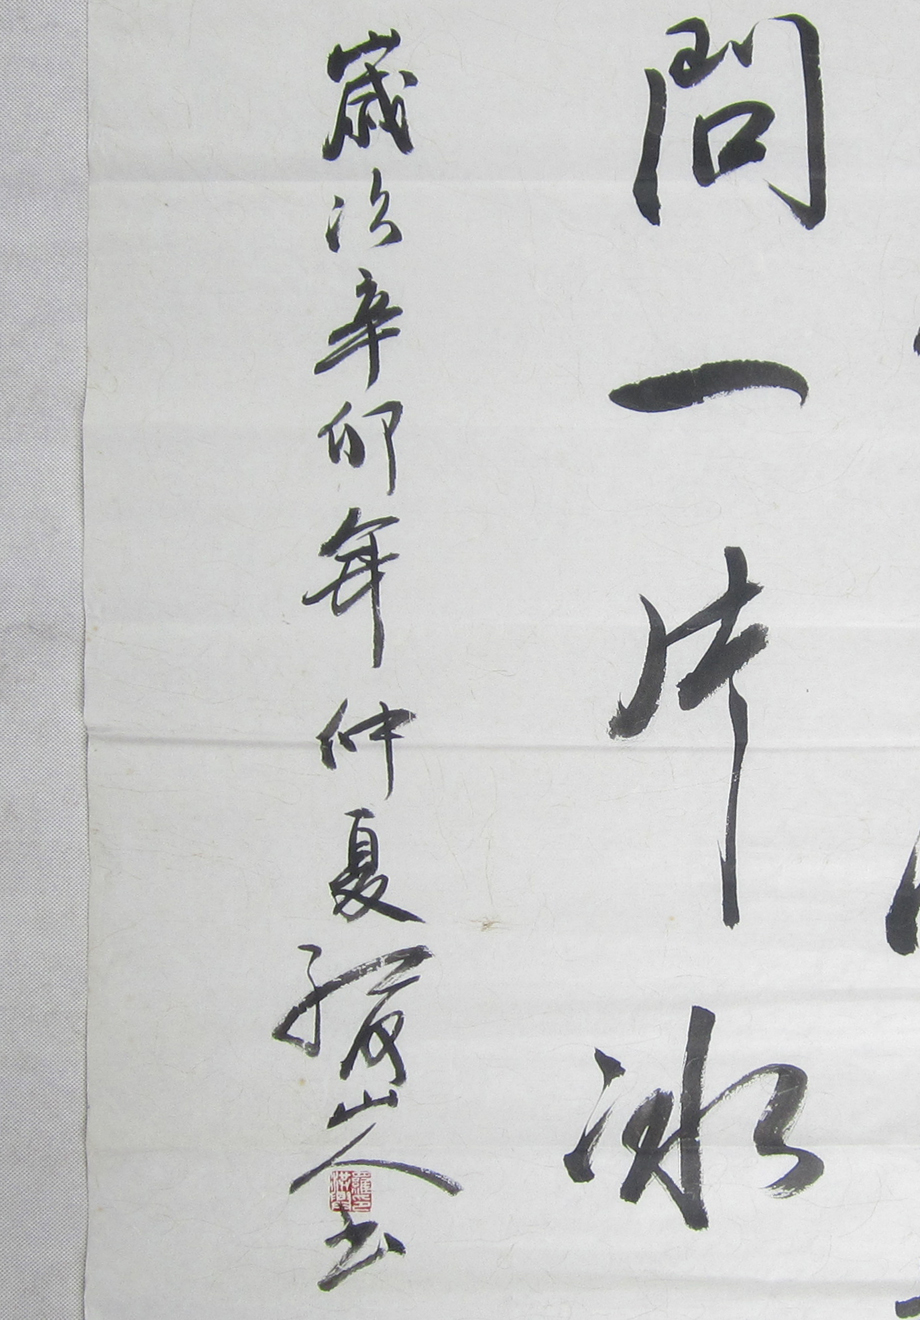 問一片冰
歲次辛卯年仲夏山人书